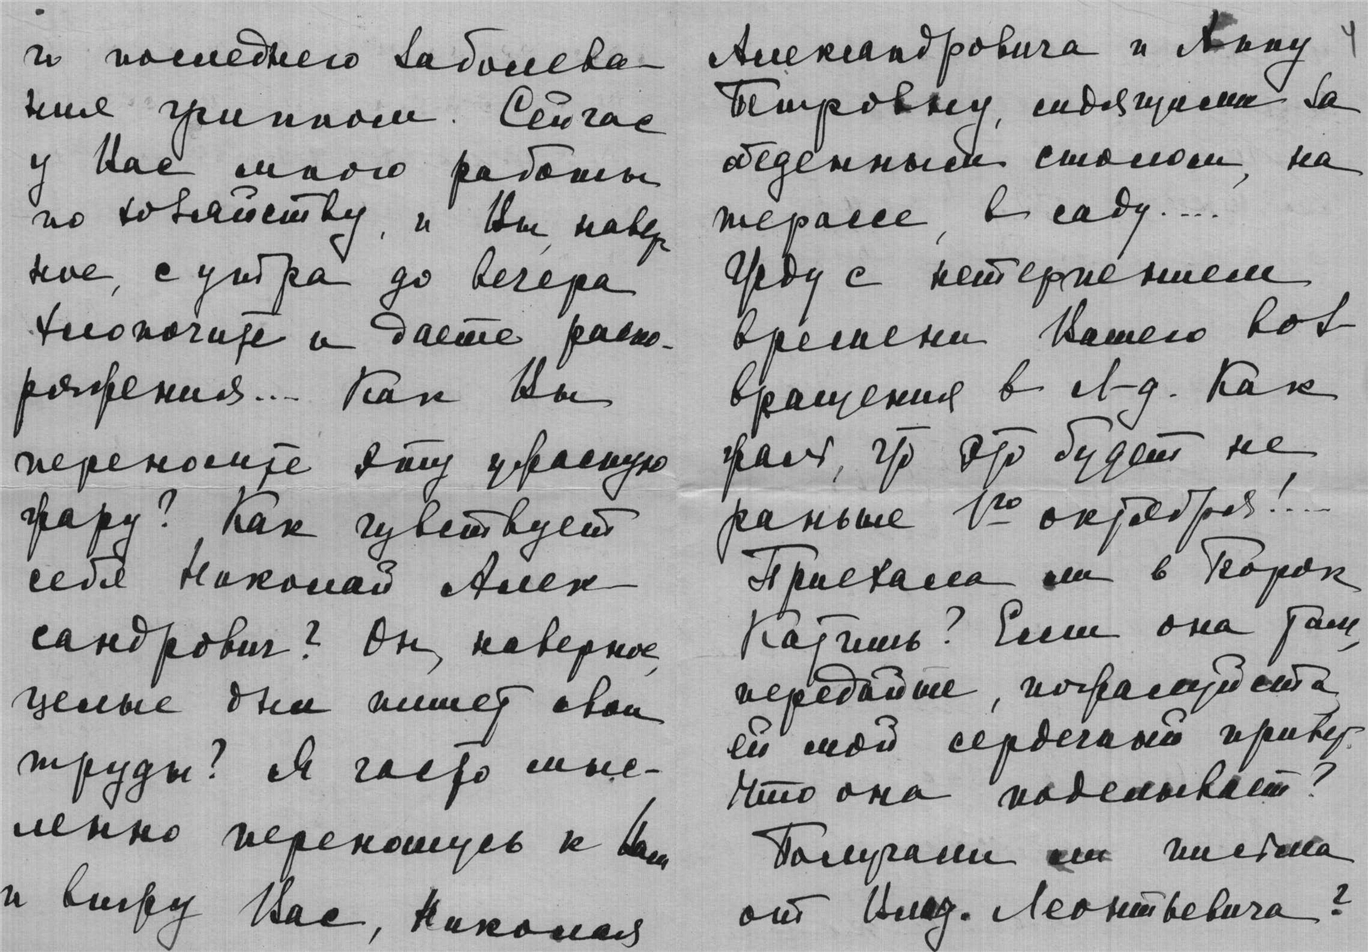 го последнего заболева-
ния гриппом. Сейчас
у Вас много работы
по хозяйству, и Вы, навер-
ное, с утра до вечера
хлопочите и даете распо-
ряжения... Как Вы
переносите эту ужасную
жару? Как чувствует
себя Николай Алек-
сандрович? Он, наверное,
целые дни пишет свои
труды? Я часто мыс-
ленно переношусь к Вам
и вижу Вас, Николая
4
Александровича и Анну
Петровну, сидящими за
обеденным столом, на
терассе, в саду....
Жду с нетерпением
времени Вашего воз-
вращения в Л-д. Как
жаль, что это будет не
раньше 1го октября!....
Приехала ли в Порок
Катишь? Если она там,
передайте, пожалуйста,
ей мой сердечный привет.
Что она поделывает?
Получали ли письма
от Влад. Леонтьевича?